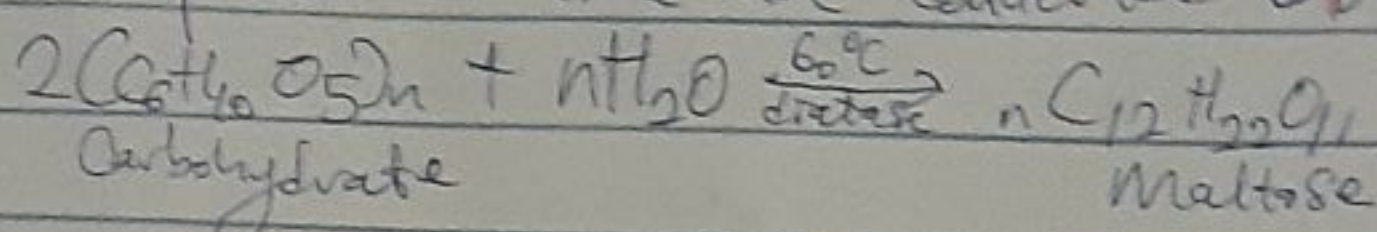 2(C₆H₁₀O₅)n + nH₂O 60°C diatase → nC₁₂H₂₂O₁₁
Carbohydrate Maltose